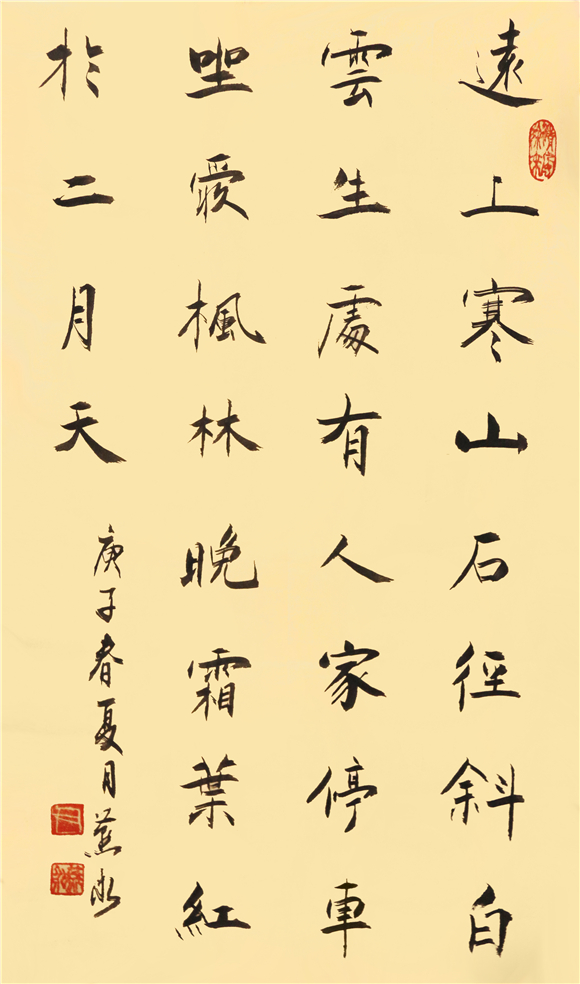 遠上寒山石徑斜白
雲生處有人家停車
坐愛楓林晚霜葉紅
於二月天
庚子春夏月